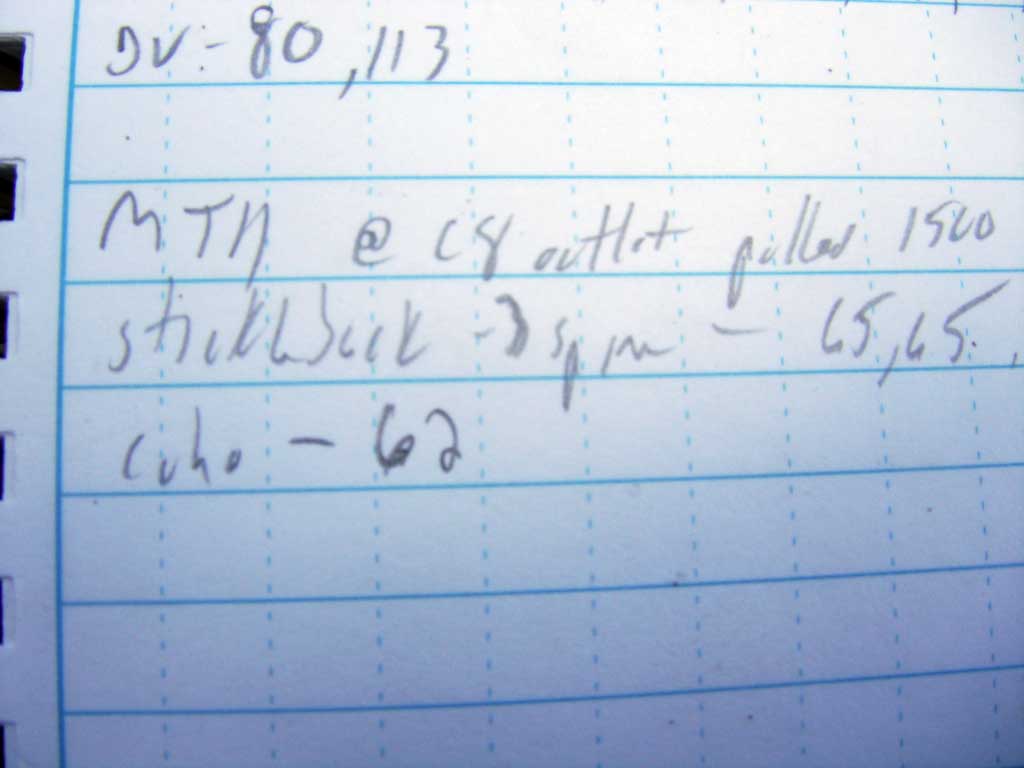 DV - 80, 113
MTA @ C8 outlet pulled 1500
stickleback - 3 spine - 65, 65
coho - 62